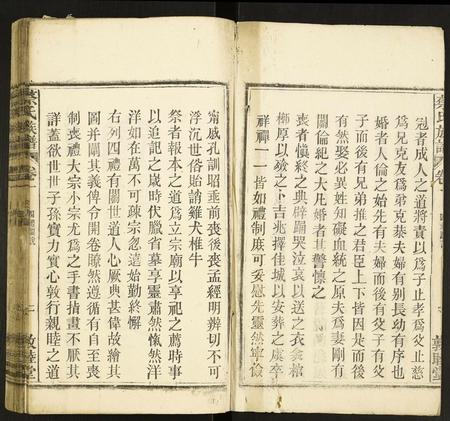 冠者成人之道將責以爲子止孝爲父止慈
爲兄克友爲弟克恭夫婦有别長幼有序也
婚者人倫之始先有夫婦而後有父子有父
子而後有兄弟推之君臣上下皆因是而後
有然娶必異姓知礙血統之原夫爲妻剛有
關倫紀之大凡婚者其警懷之
喪者慎終之典擗踊哭泣哀以送之衣衾棺
槨厚以殮之卜吉兆擇佳城以安葬之虞卒
祥禫一一皆如禮制庶可妥慰先靈然寧儉
甯戚孔訓昭垂前喪後喪孟經明辨切不可
浮沉世俗貽誚雞犬椎牛
祭者報本之道爲立宗廟以享祀之薦時事
以追記之歲時伏臘省墓享靈肅然愾然洋
洋如在萬不可疎宗忽遠始勤終懈
右列四禮有關世道人心厥典甚偉故繪其
圖幷剛其義俾令開卷瞭然遵循有自至喪
制喪禮大宗小宗尤爲之手書指畫不厭其
詳蓋欲世世子孫實力實心敦行親睦之道
蔡氏族譜
卷
二
敦睦堂